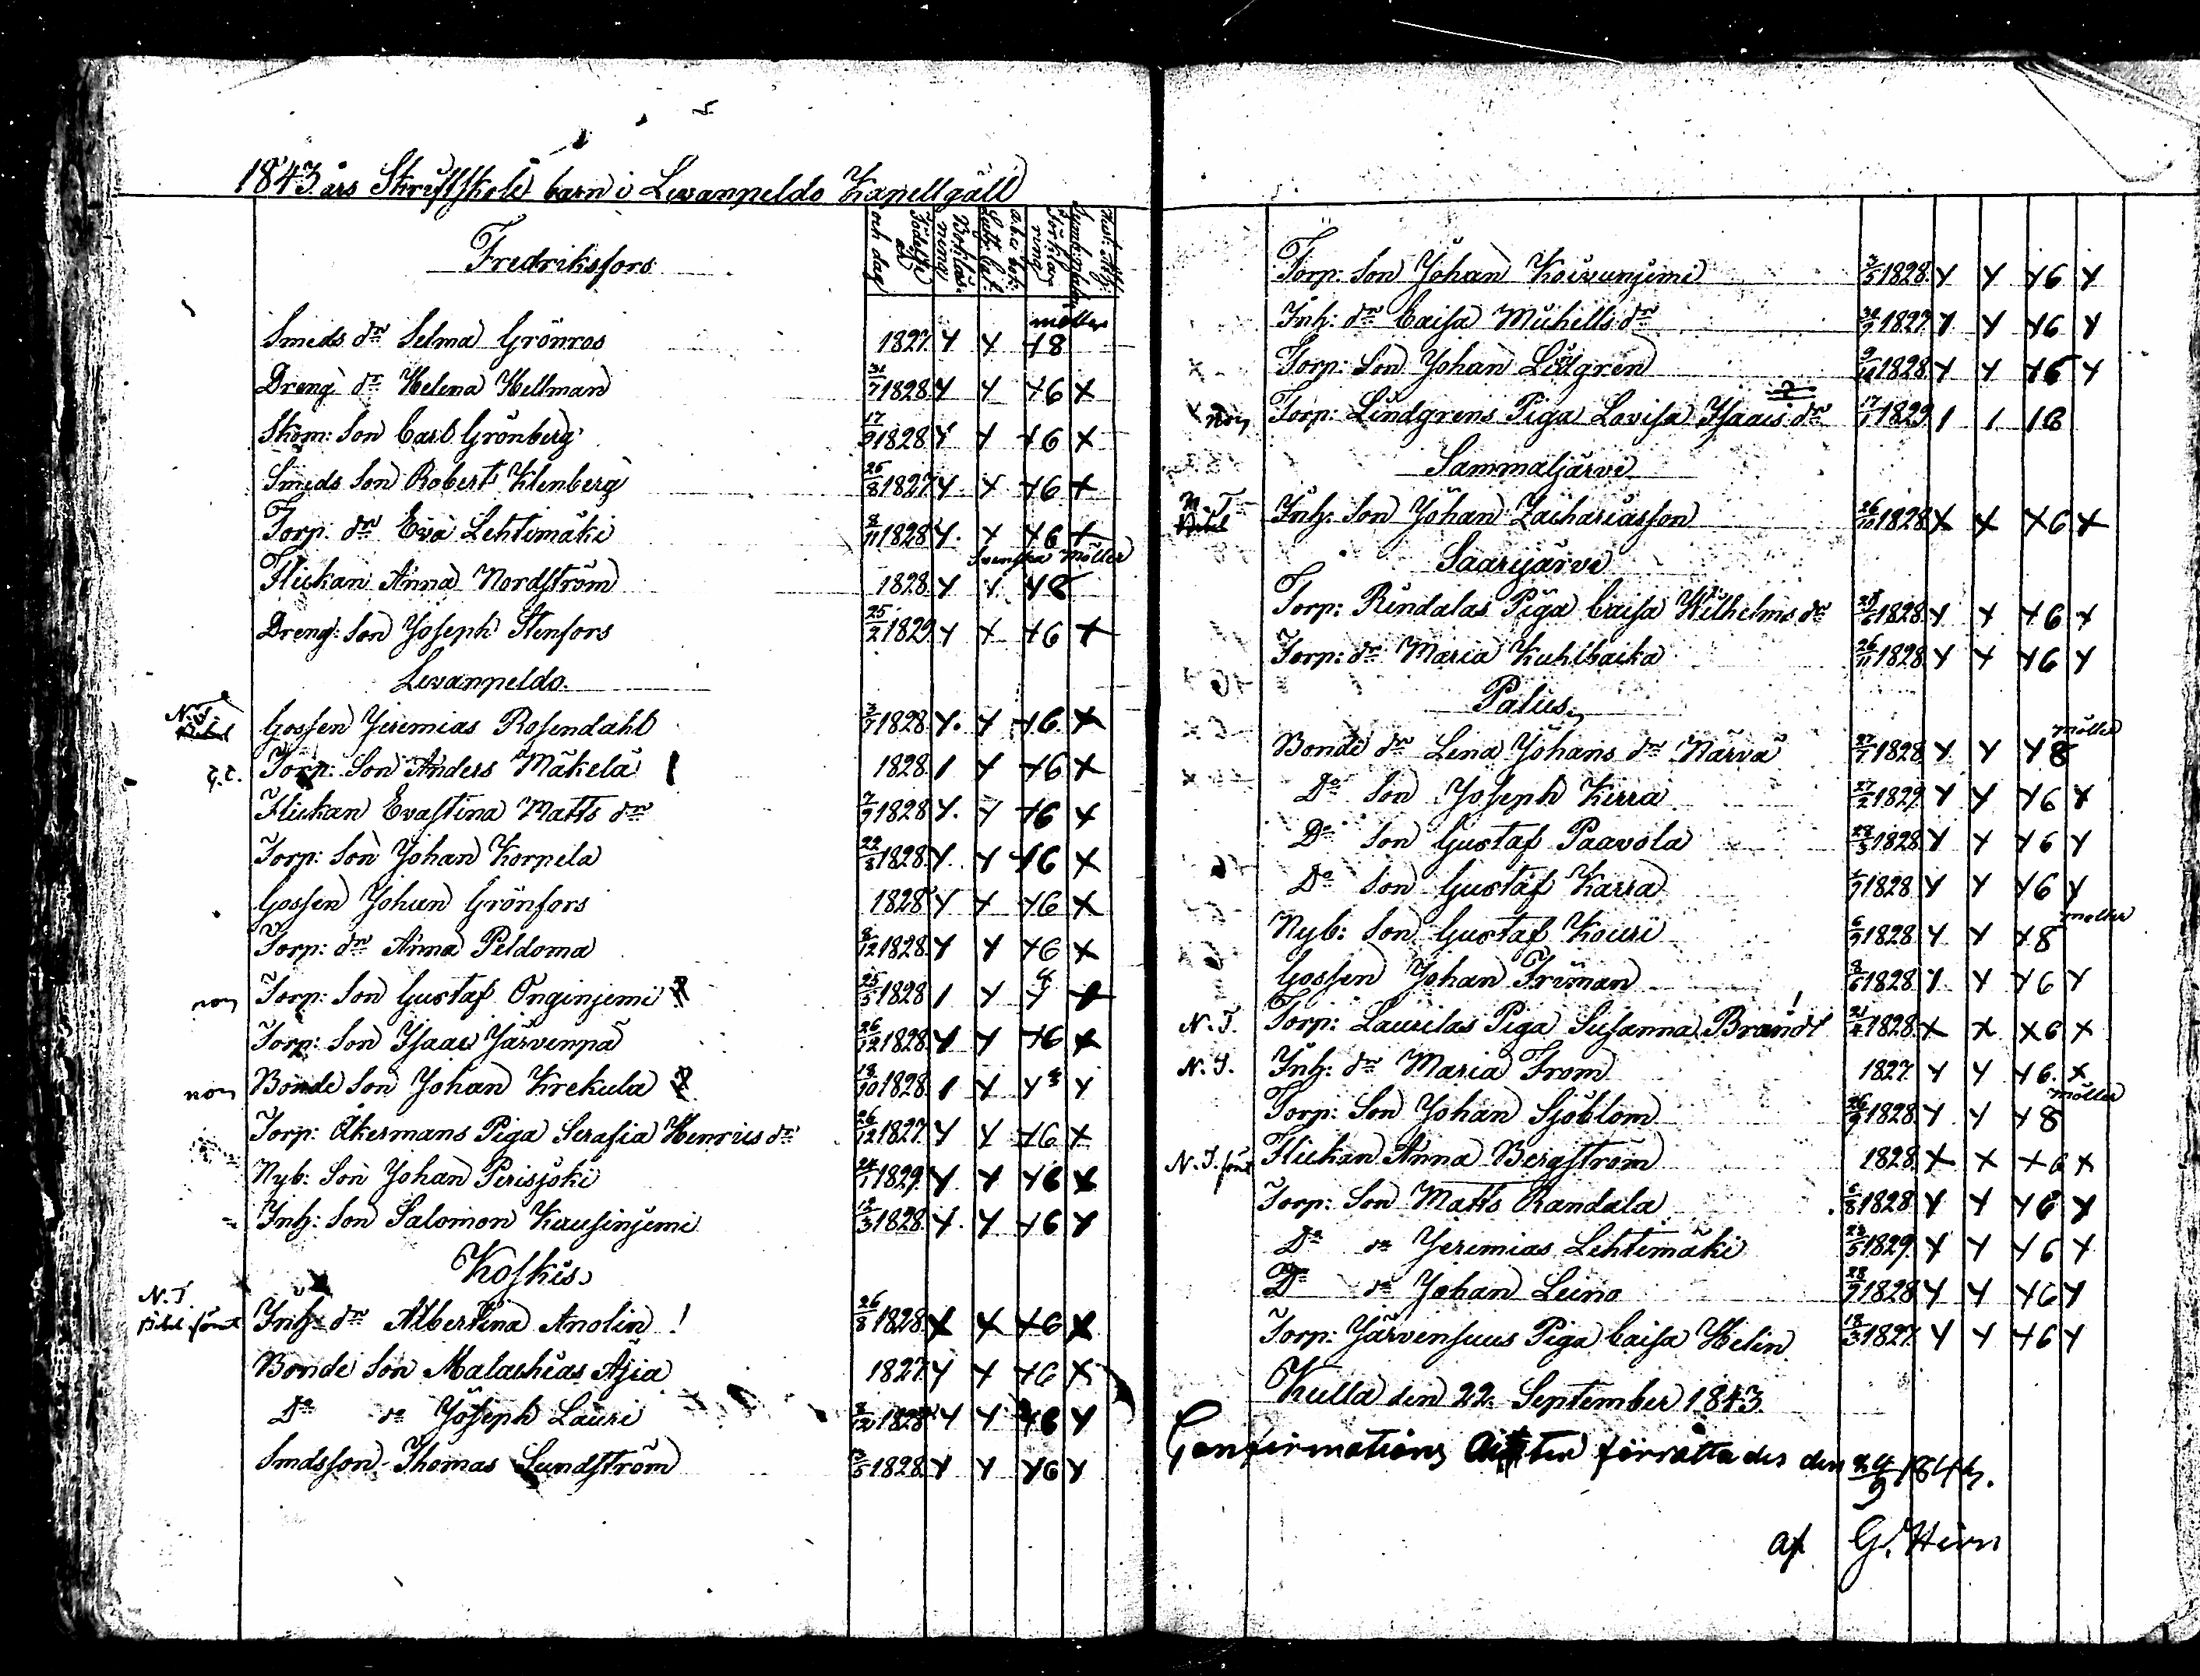 1843 års Skriftskole barn i Lewanpeldo Kapellgäll
Fredriksfors
Födelse År och dag
Smeds dr Selma Grönros 1827 x x x8 möller
Dreng dr Helena Hellman 31/7 1828 x x x6 x
Skom: Son Carl Grönberg 17/9 1828 x x x6 x
Smeds Son Robert Klenberg 26/8 1827 x x x6 x
Torp. dr Eva Lehtimäki 8/11 1828 x x x6 x
Svenska Möller
Flickan Anna Nordström 1828 x x x8
Dreng: Son Joseph Stenfors 25/2 1829 x x x6 x
Lewanpeldo
N.T. Gossen Jeremias Rosendahl 3/7 1828 x x x6 x
Torp: Son Anders Mäkelä 1828 1 x x6 x
Flickan Evastina Matts dr 7/9 1828 x x x6 x
Torp: Son Johan Korpela 22/8 1828 x x x6 x
Gossen Johan Grönfors 1828 x x x6 x
Torp: dr Anna Peldoma 8/12 1828 x x x6 x
non Torp: Son Gustaf Onginjemi 25/5 1828 1 x x
Torp: Son Isaac Järvenpä 26/12 1828 x x x6 x
non Bonde Son Johan Krekula 18/10 1828 1 x x x
Torp: Åkermans Piga Serafia Henrics dr 26/12 1827 x x x6 x
Nyb: Son Johan Perisjoki 24/1 1829 x x x6 x
Inh: Son Salomon Kausinjemi 12/3 1828 x x x6 x
Koskis
N.T.
Bibel förut Inh: dr Albertina Anolin ! 26/8 1828 x x x6 x
Bonde Son Malachias Äjia 1827 x x x6 x
Do do Joseph Lauri 8/12 1828 x x x6 x
Smdsson Thomas Lundström 3/5 1828 x x x6 x
Torp: Son Johan Koivunjemi 3/5 1828 x x x6 x
Inh: dr Caisa Michells dr 1827 x x x6 x
Torp: Son Johan Lövgren 9/10 1828 x x x6 x
non Torp: Lindgrens Piga Lovisa Isaacs dr 17/1 1829 1 1 18
Sammaljärvi
N.T. Inh: Son Johan Zachariasson 26/10 1828 x x x6 x
Saarijärvi
Torp: Rindalas Piga Caisa Wilhelms dr 1828 x x x6 x
Torp: dr Maria Kuhlbacka 26/11 1828 x x x6 x
Palus
Bonde dr Lena Johans dr Närvä 27/7 1828 x x x8 möller
Do Son Joseph Kerra 27/2 1829 x x x6 x
Do Son Gustaf Paavola 28/5 1828 x x x6 x
Do Son Gustaf Karra 1828 x x x6 x
Nyb: Son Gustaf Kouri 6/9 1828 x x x8 möller
Gossen Johan Friman 8/6 1828 x x x6 x
N.T. Torp: Laurilas Piga Susanna Brandt ! 21/4 1828 x x x6 x
N.T. Inh: dr Maria From 1827 x x x6 x
Torp: Son Johan Sjöblom 26/9 1828 x x x8 möller
N.T. förut Flickan Anna Bergström 1828 x x x6 x
Torp: Son Matts Randala 6/8 1828 x x x6 x
Do do Jeremias Lehtimäki 23/5 1829 x x x6 x
Do do Johan Leino 28/9 1828 x x x6 x
Torp: Järvensuus Piga Caisa Helin 18/3 1827 x x x6 x
Kulla den 22 September 1843
Confirmations Akten förrättades den 24/9 1843.
af G. Hirn